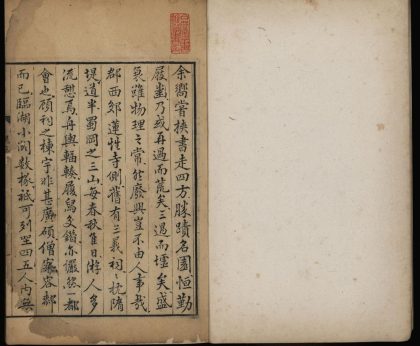 余嚮嘗挾書走四方勝蹟名園恒勤
屐齒乃或再過而荒矣三過而墟矣盛
衰雖物理之常然廢興豈不由人事哉
郡西郊蓮性寺側舊有三義祠〻枕隋
堤道半蜀岡之三山每春秋佳日游人多
流憩焉舟輿輻輳履舄交錯亦儼然一都
會也顧祠之棟宇非甚廣碩僧寮容
而已臨湖小閣數椽祗可列坐四五人內無